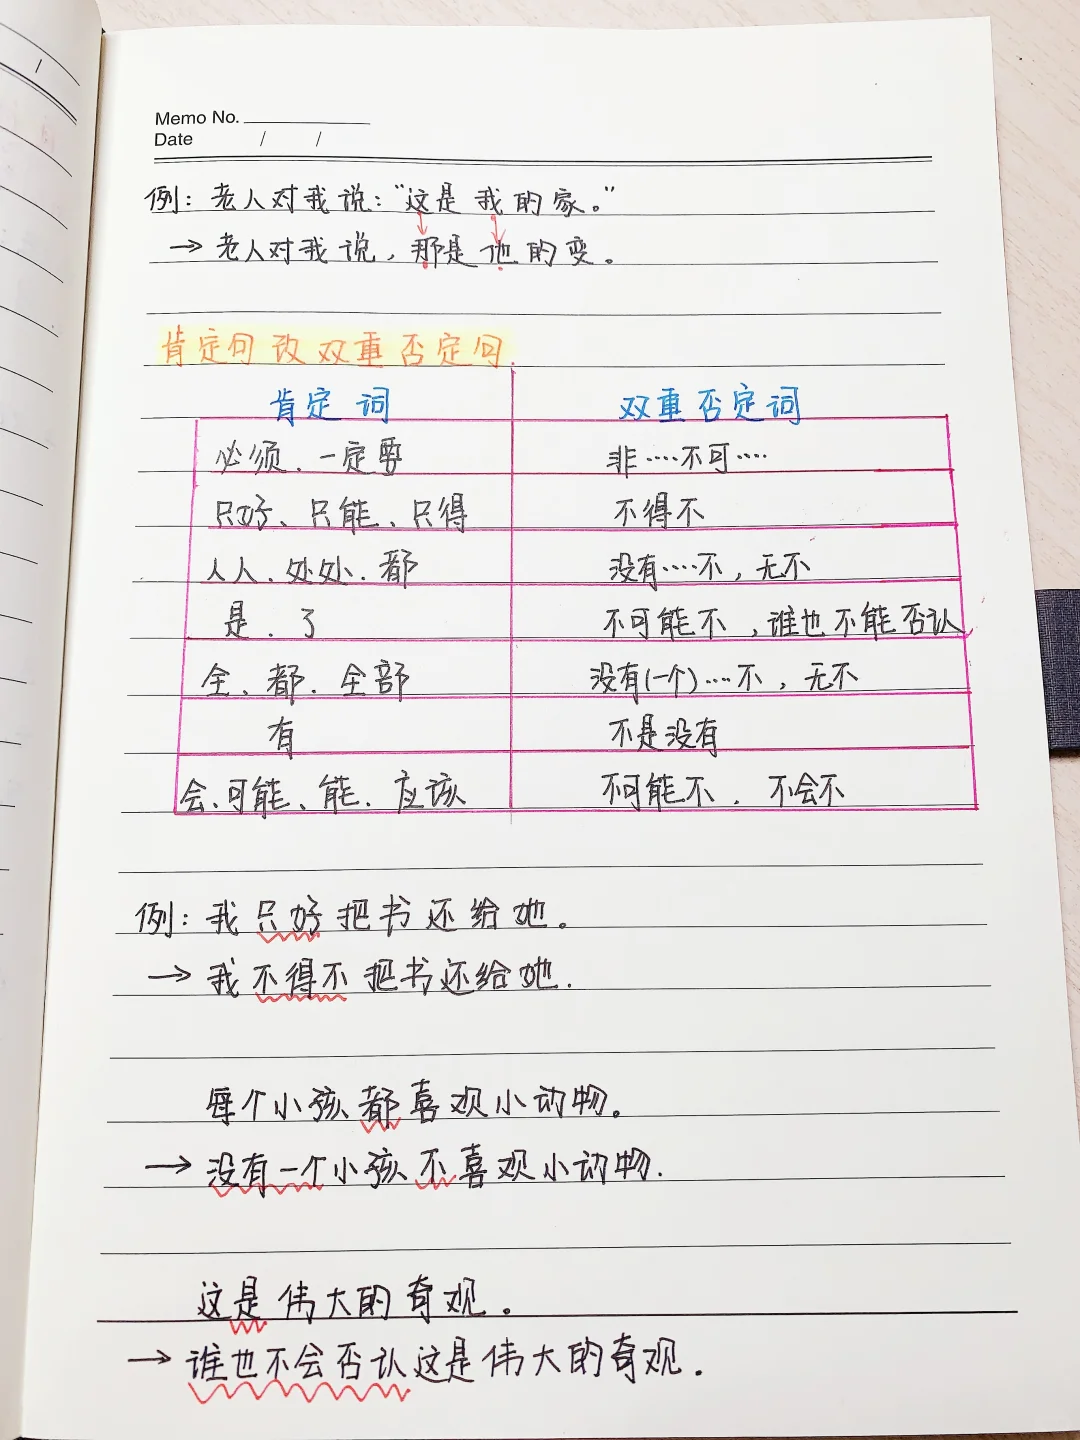 Memo No.
Date / /
例：老人对我说：“这是我的家。”
→ 老人对我说，那是他的变。
肯定句改双重否定句.
肯定词 双重否定词
必须、一定要 非……不可……
只好、只能、只得 不得不
人人、处处、都 没有……不，无不
是、了 不可能不，谁也不能否认
全、都、全部 没有(一个)……不，无不
有 不是没有
会、可能、能、应该 不可能不、不会不
例：我只好把书还给她。
→ 我不得不把书还给她.
每个小孩都喜观小动物。
→ 没有一个小孩不喜观小动物.
这是伟大的奇观。
→ 谁也不会否认这是伟大的奇观.